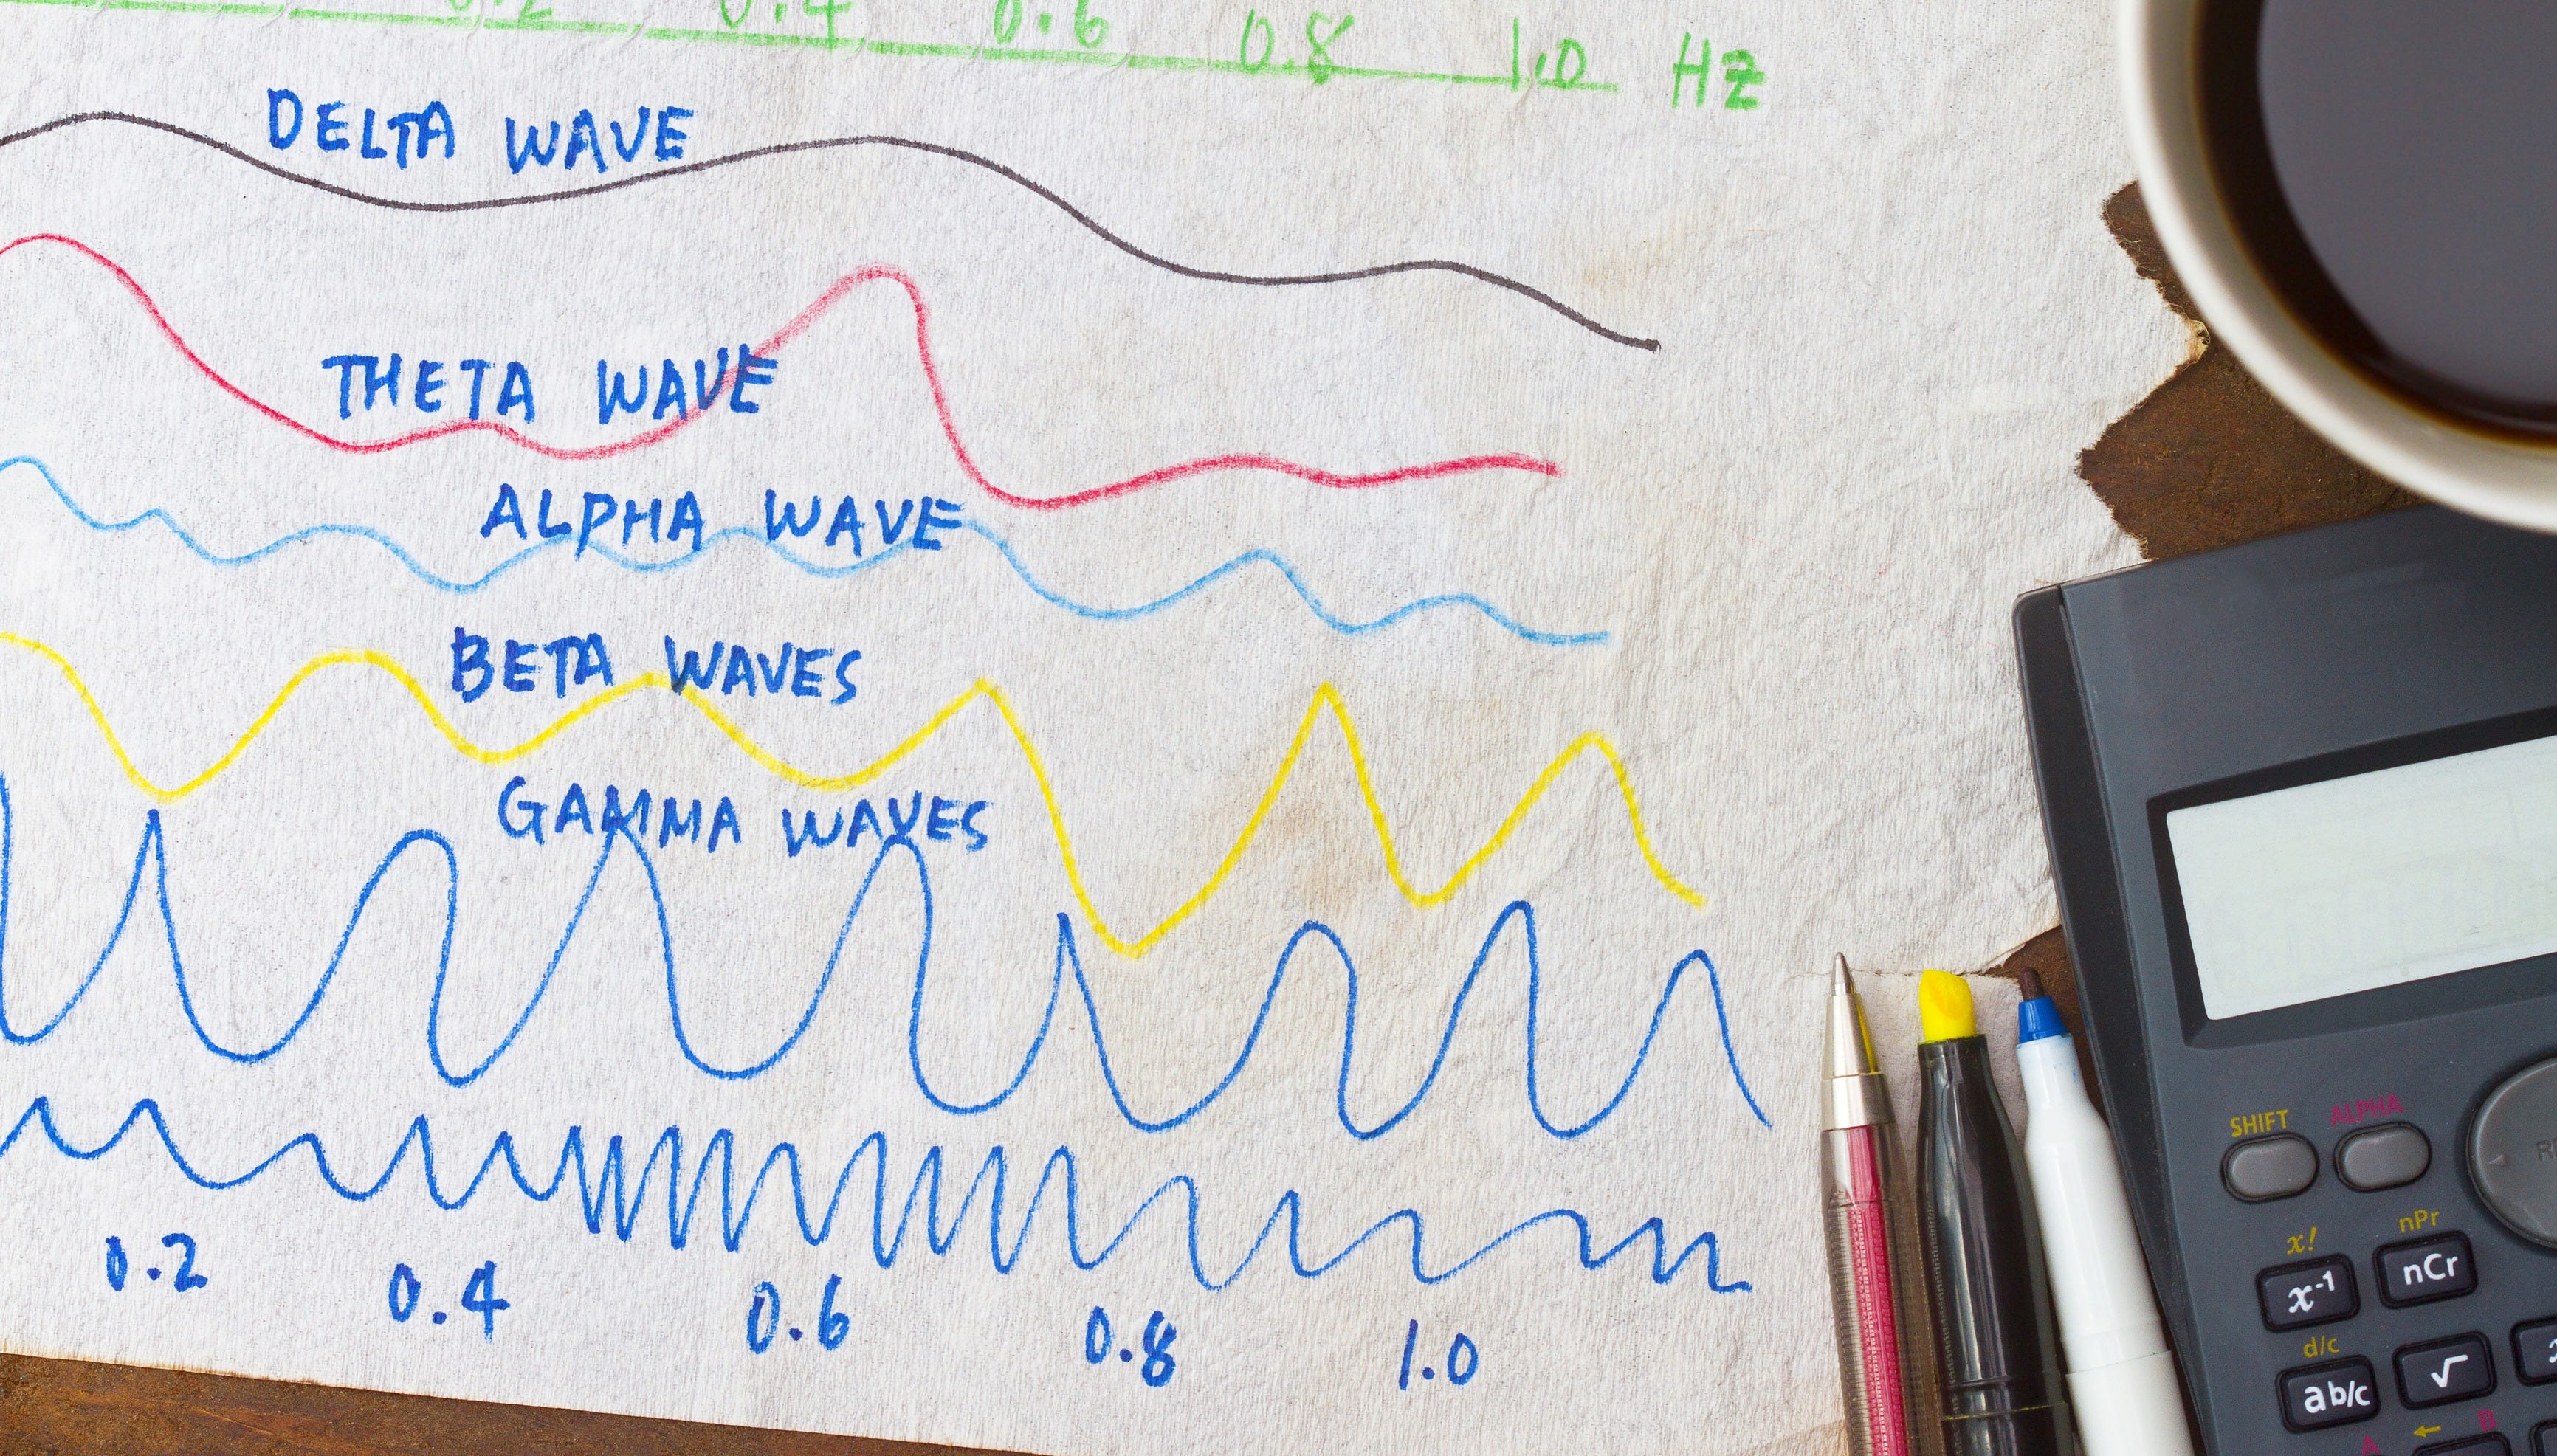 0.2 0.4 0.6 0.8 1.0 Hz
DELTA WAVE
THETA WAVE
ALPHA WAVE
BETA WAVES
GAMMA WAVES
0.2 0.4 0.6 0.8 1.0
SHIFT ALPHA
x! nPr
x⁻¹ nCr
d/c
ab/c √
← B
A